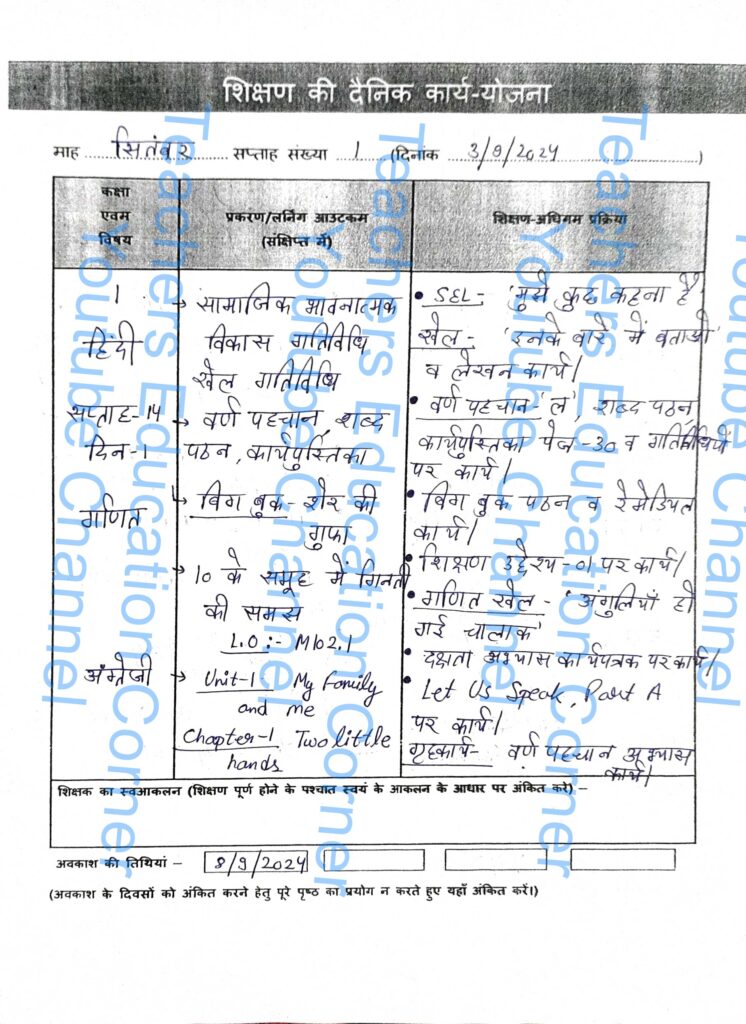 शिक्षण की दैनिक कार्य-योजना
माह सितंबर सप्ताह संख्या 1 (दिनांक 3/9/2024)
कक्षा
एवम
विषय
प्रकरण/लर्निंग आउटकम
(संक्षिप्त में)
शिक्षण-अधिगम प्रक्रिया
1
हिंदी
सप्ताह-14
दिन-1
गणित
अंग्रेजी
→ सामाजिक भावनात्मक
विकास गतिविधि
खेल गतिविधि
→ वर्ण पहचान, शब्द
पठन, कार्यपुस्तिका
↳ बिग बुक- शेर की
गुफा
→ 10 के समूह में गिनती
की समझ
L.O :- M102.1
→ Unit-1 My Family
and me
Chapter-1 Two little
hands
• SEL- 'मुझे कुछ कहना है'
खेल- 'इनके बारे में बताओ'
व लेखन कार्य।
• वर्ण पहचान- 'ल', शब्द पठन
कार्यपुस्तिका पेज -30 व गतिविधियों
पर कार्य।
• बिग बुक पठन व रेमेडियल
कार्य।
• शिक्षण उद्देश्य-01 पर कार्य।
• गणित खेल- 'अंगुलियाँ हो
गई चालाक'
• दक्षता अभ्यास कार्यपत्रक पर कार्य।
• Let Us Speak, Part A
पर कार्य।
गृहकार्य- वर्ण पहचान अभ्यास
कार्य।
शिक्षक का स्वआकलन (शिक्षण पूर्ण होने के पश्चात स्वयं के आकलन के आधार पर अंकित करे) –
अवकाश की तिथियां – 8/9/2024
(अवकाश के दिवसों को अंकित करने हेतु पूरे पृष्ठ का प्रयोग न करते हुए यहाँ अंकित करें।)
Teachers Education Corner
Youtube Channel
Teachers Education Corner
Youtube Channel
Teachers Education Corner
Youtube Channel